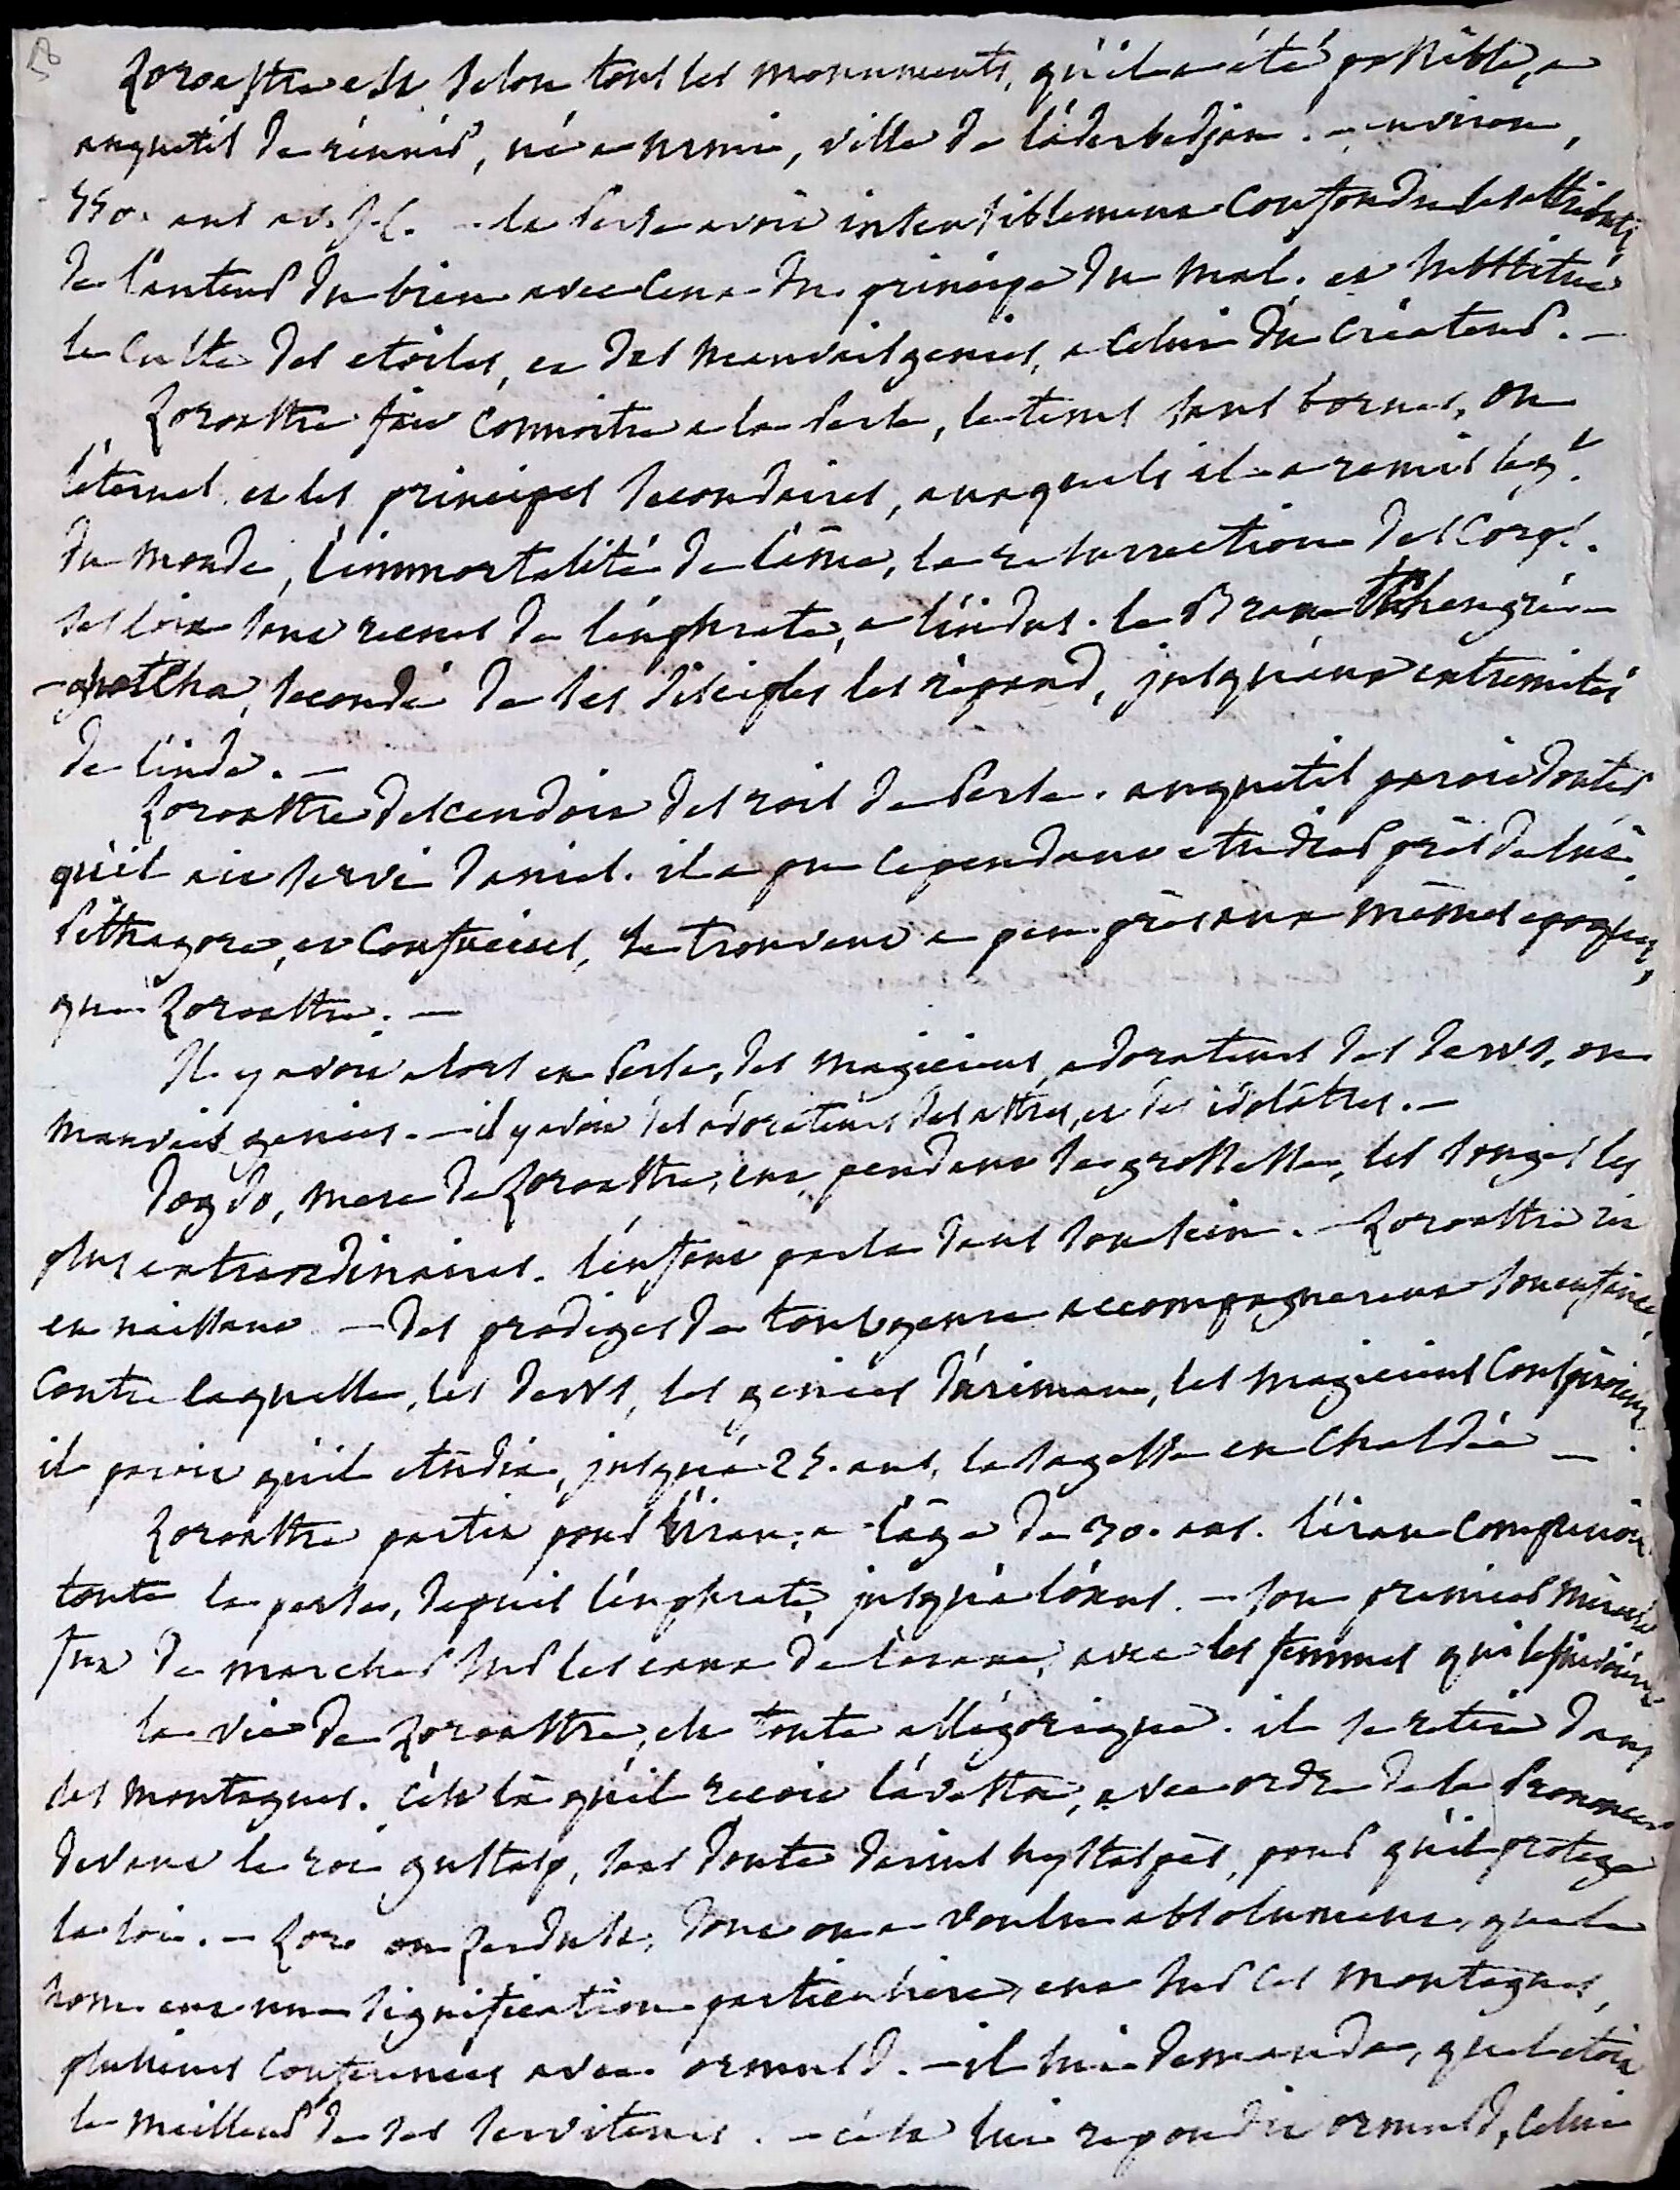 58
Zoroastre est selon tous les monuments, qu'il a été possible, a
anquetil de réunir, né a urmi, ville de l'aderbedjan. - environ,
550. ans av. J.-C. - la Perse avoit insensiblement confondu les attributs
de l'auteur du bien avec ceux du principe du mal. et substitué
le culte des etoiles, et des mauvais genies, a celui du createur. -
Zoroastre fait connoitre a la Perse, le tems sans bornes, ou
l'éternel et les principes secondaires, auxquels il a remis le gt.
du monde, l'immortalité de l'âme, la resurrection des corps.
ses loix sont recues de l'euphrate, a l'indus. le Brame Tchengré-
-ghatcha, secondé de ses disciples les répand, jusqu'aux extremités
de l'inde. -
Zoroastre descendoit des rois de Perse. anquetil paroit douter
qu'il ait servi daniel. il a pu cependant etudier près de lui.
Pithagore, et Confucius, se trouvent a peu près aux mêmes epoques,
que Zoroastre. -
Il y avoit alors en Perse, des magiciens, adorateurs des dews, ou
mauvais genies. - il y avoit des adorateurs des astres, et des idolâtres. -
Dogdo, mere de Zoroastre, eut pendant sa grossesse, les songes les
plus extraordinaires. l'enfant parla dans son sein. - Zoroastre rit
en naissant - des prodiges de tout genre accompagnerent son enfance,
contre laquelle, les dews, les genies d'ariman, les magiciens conspiroient.
il paroit qu'il etudia, jusqu'a 25. ans, la sagesse en Chaldée -
Zoroastre partit pour l'iran, a l'âge de 30. ans. l'iran comprenoit
toute la perse, depuis l'euphrate, jusqu'a l'oxus. - son premier miracle
fut de marcher sur les eaux de l'araxe, avec les femmes qui le suivoient
la vie de Zoroastre, est toute allégorique. il se retire dans
des montagnes. c'est là qu'il recoit l'avesta, avec ordre de la prononcer
devant le roi gustasp, sans doute darius hystaspès, pour qu'il protege
la loi. - Zoro ou Zerdust, dont on a voulu absolument, que le
nom eut une signification particuliere, eut sur ces montagnes,
plusieurs conferences avec ormusd. - il lui demanda, quel etoit
le meilleur de ses serviteurs. - c'est lui repondit ormusd, celui